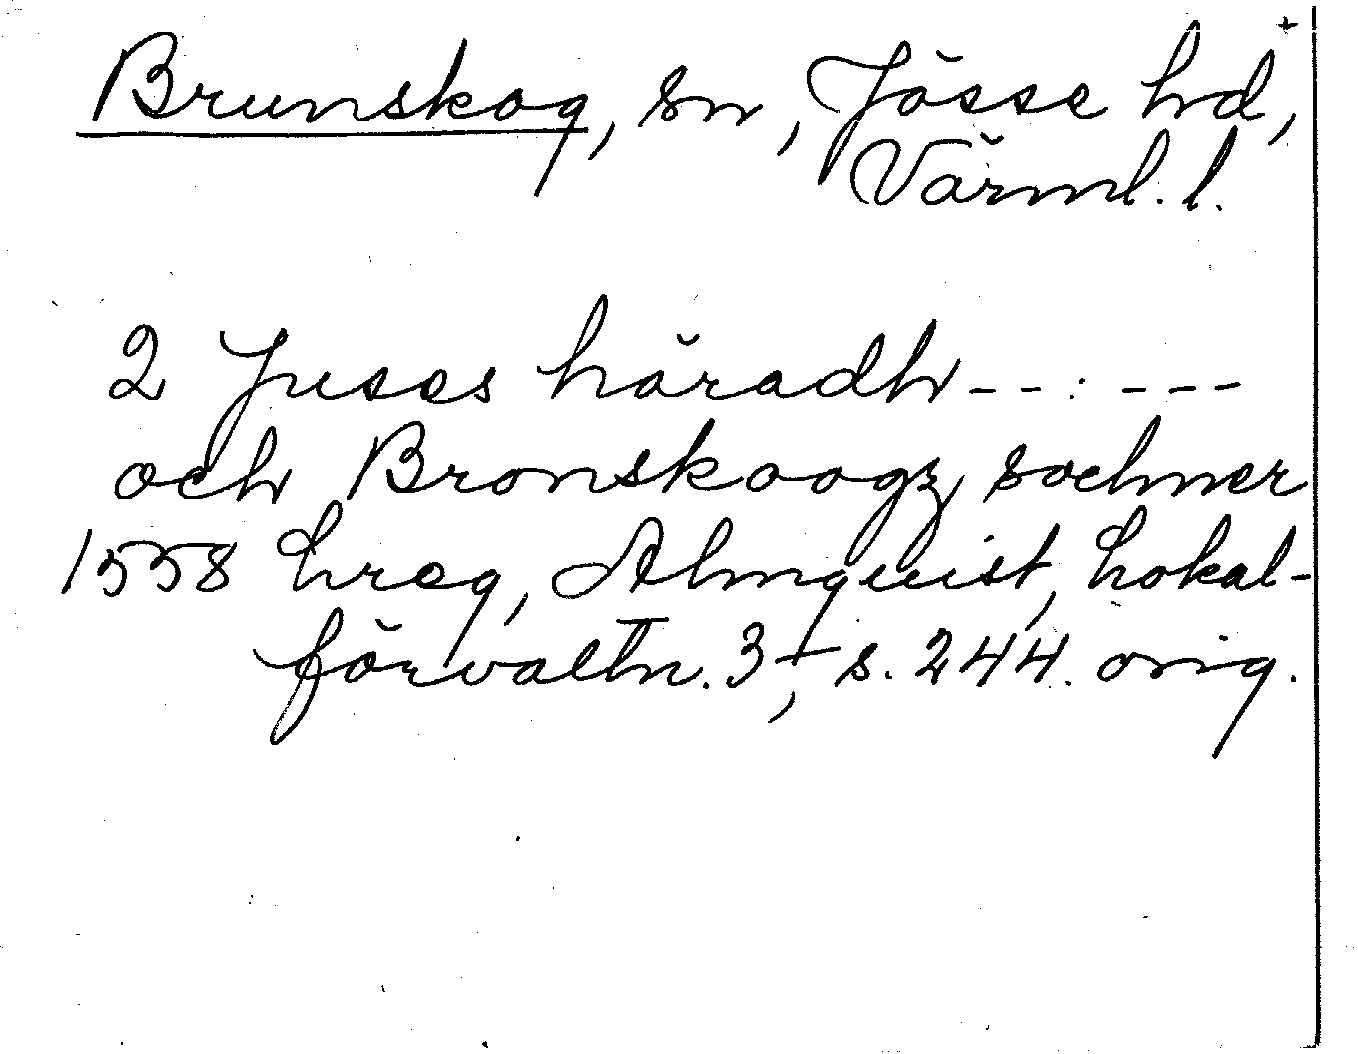 Brunskog, sn, Jösse hd,
Värml. l.
2 Juses häradh - - : - - -
och Bronskoogz sochner
1558 Lreg, Almquist, Lokal-
förvaltn. 3, s. 244. orig.